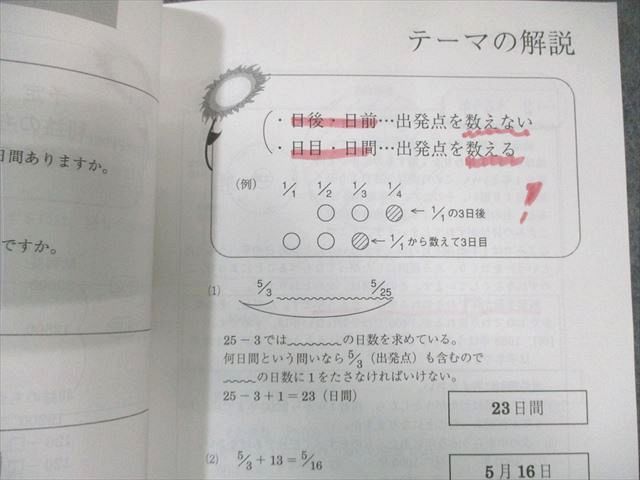 テーマの解説
・日後・日前…出発点を数えない
・日目・日間…出発点を数える
(例) 1/1 1/2 1/3 1/4
← 1/1の3日後
← 1/1から数えて3日目
!
(1) 5/3 5/25
25－3では の日数を求めている。
何日間という問いなら5/3（出発点）も含むので
の日数に1をたさなければいけない。
25－3＋1＝23（日間）
23日間
(2) 5/3＋13＝5/16
5月16日
日間ありますか。
ですか。